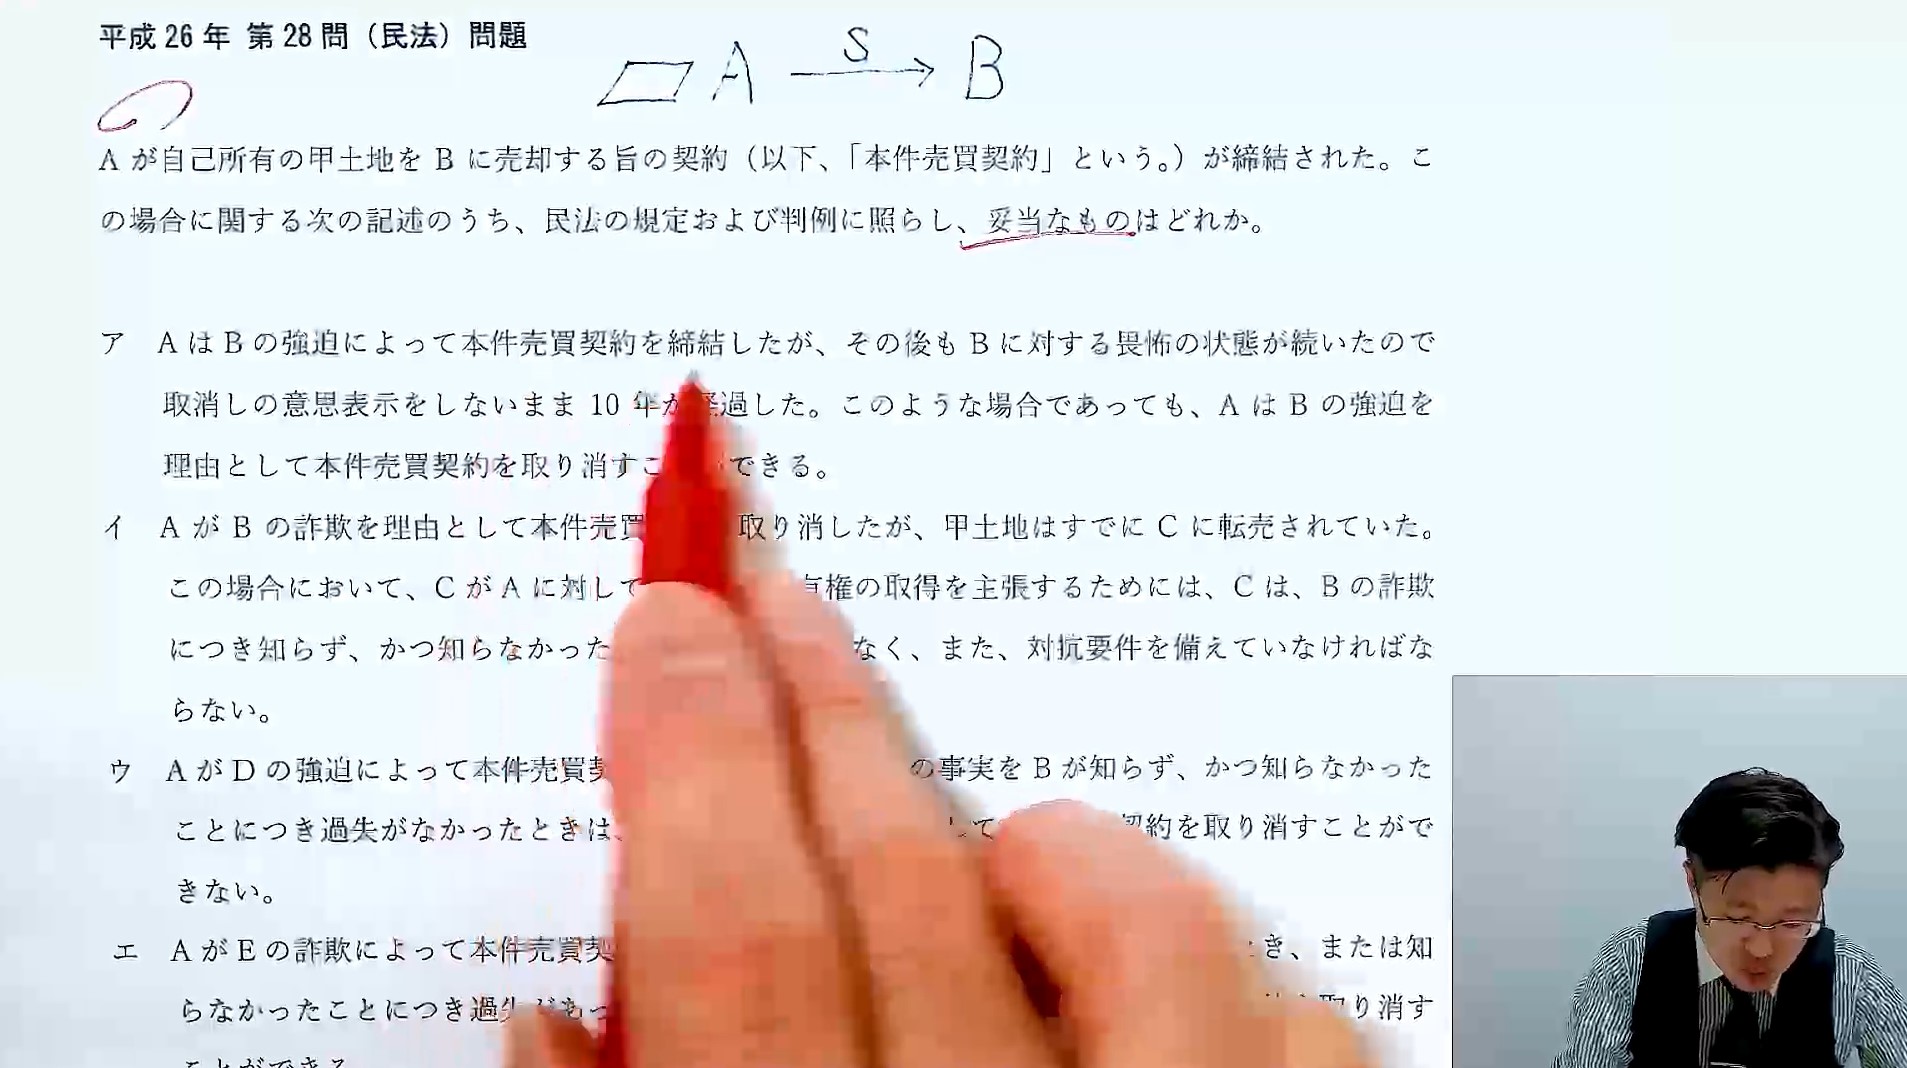 平成 26 年 第 28 問（民法）問題
A S B
A が自己所有の甲土地を B に売却する旨の契約（以下、「本件売買契約」という。）が締結された。こ
の場合に関する次の記述のうち、民法の規定および判例に照らし、妥当なものはどれか。
ア A は B の強迫によって本件売買契約を締結したが、その後も B に対する畏怖の状態が続いたので
取消しの意思表示をしないまま 10 年が経過した。このような場合であっても、A は B の強迫を
理由として本件売買契約を取り消すこ できる。
イ A が B の詐欺を理由として本件売買 取り消したが、甲土地はすでに C に転売されていた。
この場合において、C が A に対して 有権の取得を主張するためには、C は、B の詐欺
につき知らず、かつ知らなかった なく、また、対抗要件を備えていなければな
らない。
ウ A が D の強迫によって本件売買契 の事実を B が知らず、かつ知らなかった
ことにつき過失がなかったときは、 して 契約を取り消すことがで
きない。
エ A が E の詐欺によって本件売買契 き、または知
らなかったことにつき過失があっ 取り消す
ことができる